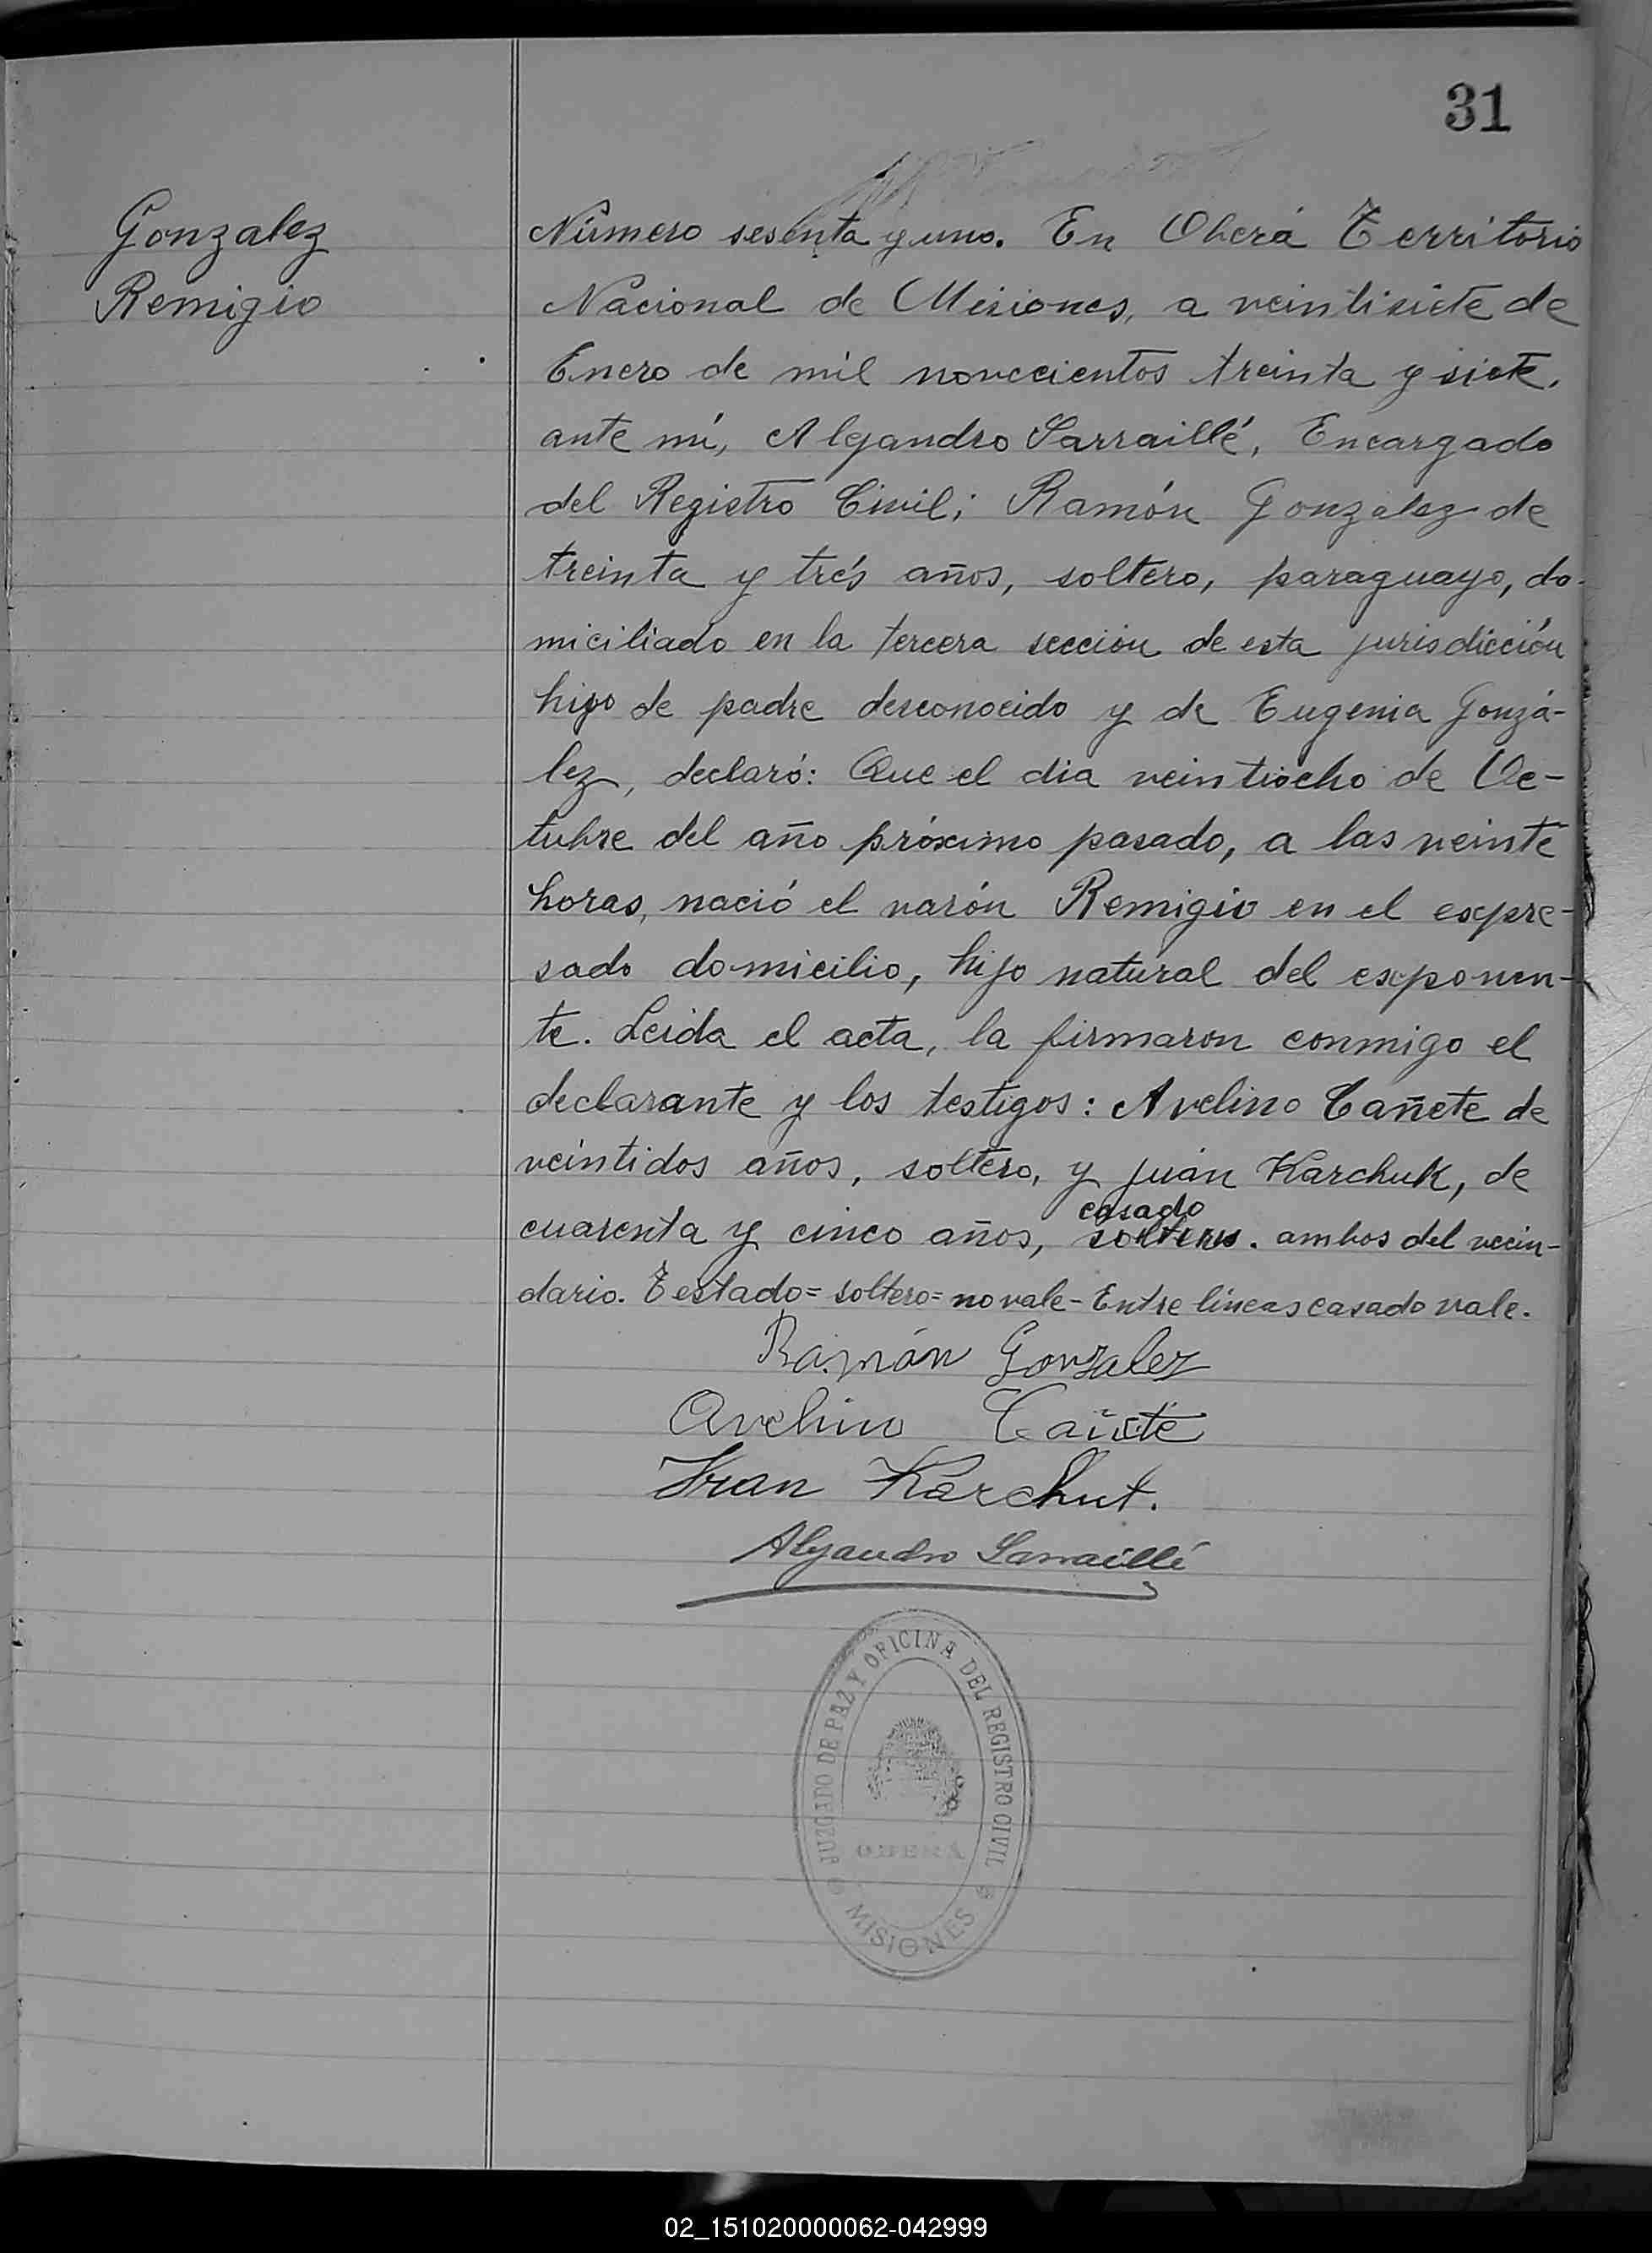 31
Gonzalez
Remigio
Número sesenta y uno. En Oberá Territorio
Nacional de Misiones, a veintisiete de
Enero de mil novecientos treinta y siete,
ante mí, Alejandro Sarraillé, Encargado
del Registro Civil; Ramón González de
treinta y trés años, soltero, paraguayo, do-
miciliado en la tercera sección de esta jurisdicción
hijo de padre desconocido y de Eugenia Gonzá-
lez, declaró: Que el dia veintiocho de Oc-
tubre del año próximo pasado, a las veinte
horas, nació el varón Remigio en el expre-
sado domicilio, hijo natural del exponen-
te. Leida el acta, la firmaron conmigo el
declarante y los testigos: Avelino Cañete de
veintidos años, soltero, y Juan Karchuk, de
casado
cuarenta y cinco años, soltero. ambos del vecin-
dario. Testado=soltero=no vale-Entre líneas casado vale.
Ramón Gonzalez
Avelino Cañete
Iván Karchut.
Alejandro Sarraillé
JUZGADO DE PAZ Y OFICINA DEL REGISTRO CIVIL
OBERÁ
MISIONES
02_151020000062-042999